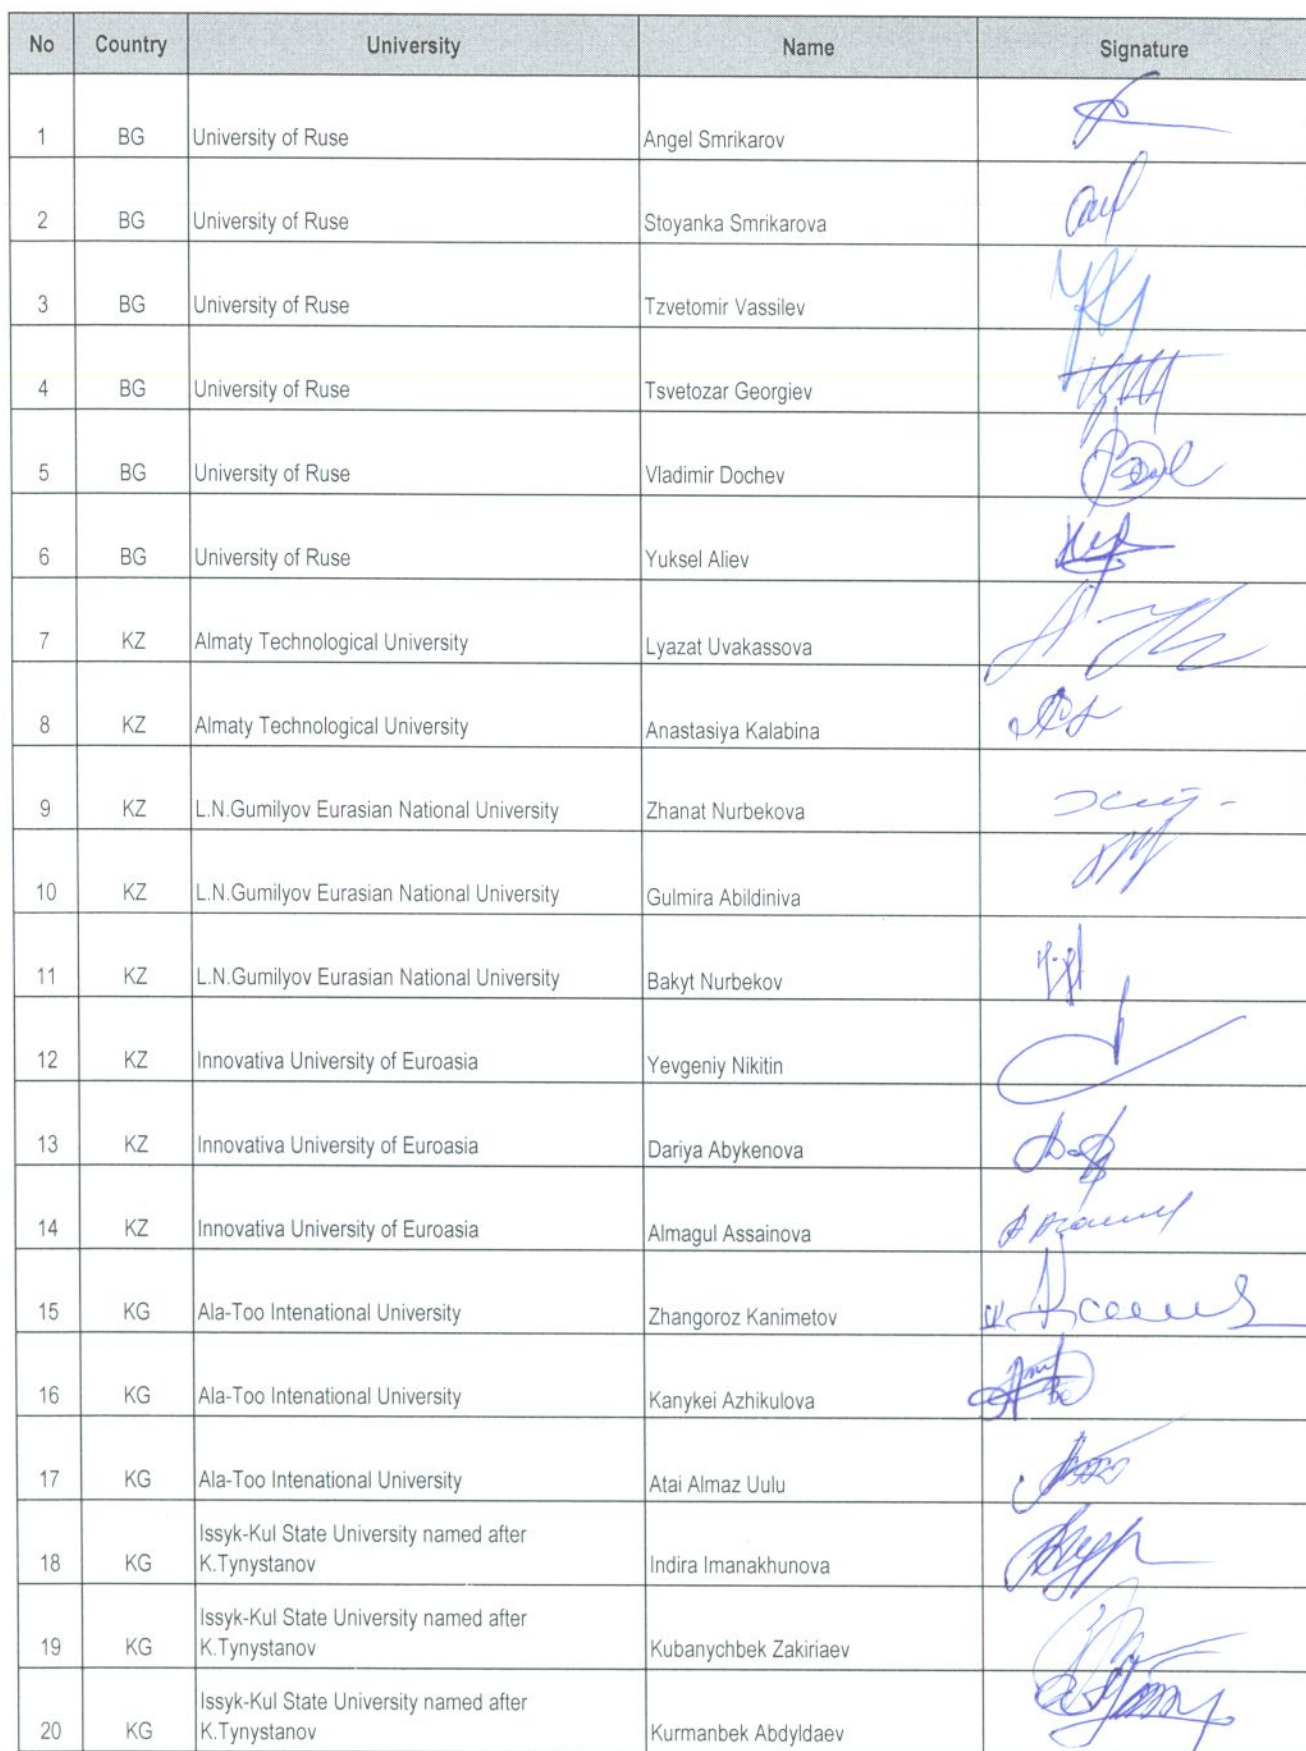 No Country University Name Signature
1 BG University of Ruse Angel Smrikarov
2 BG University of Ruse Stoyanka Smrikarova
3 BG University of Ruse Tzvetomir Vassilev
4 BG University of Ruse Tsvetozar Georgiev
5 BG University of Ruse Vladimir Dochev
6 BG University of Ruse Yuksel Aliev
7 KZ Almaty Technological University Lyazat Uvakassova
8 KZ Almaty Technological University Anastasiya Kalabina
9 KZ L.N.Gumilyov Eurasian National University Zhanat Nurbekova
10 KZ L.N.Gumilyov Eurasian National University Gulmira Abildiniva
11 KZ L.N.Gumilyov Eurasian National University Bakyt Nurbekov
12 KZ Innovativa University of Euroasia Yevgeniy Nikitin
13 KZ Innovativa University of Euroasia Dariya Abykenova
14 KZ Innovativa University of Euroasia Almagul Assainova
15 KG Ala-Too Intenational University Zhangoroz Kanimetov
16 KG Ala-Too Intenational University Kanykei Azhikulova
17 KG Ala-Too Intenational University Atai Almaz Uulu
Issyk-Kul State University named after
18 KG K.Tynystanov Indira Imanakhunova
Issyk-Kul State University named after
19 KG K.Tynystanov Kubanychbek Zakiriaev
Issyk-Kul State University named after
20 KG K.Tynystanov Kurmanbek Abdyldaev